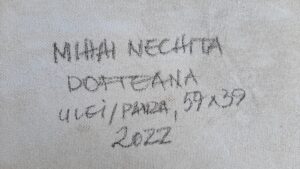 MIHAI NECHITA
DOFTEANA
ULEI/PANZA, 59x39
2022